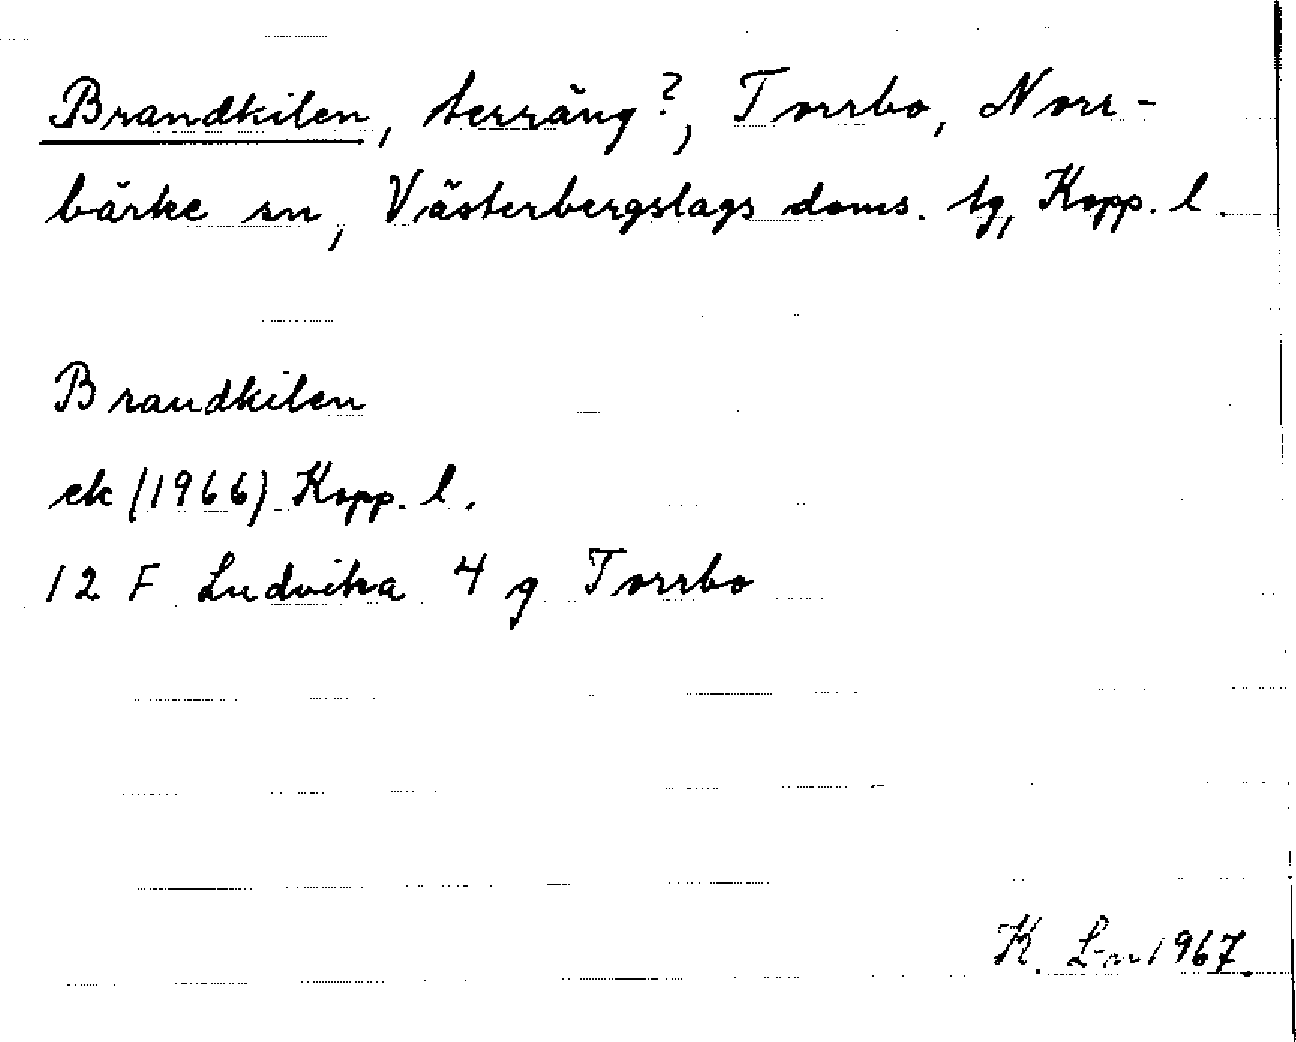 Brandkilen, terräng?, Torrbo, Norr-
bärke sn, Västerbergslags doms. tg, Kopp. l.
Brandkilen
ek (1966) Kopp. l.
12 F Ludvika 4 g Torrbo
K. L-n 1967.